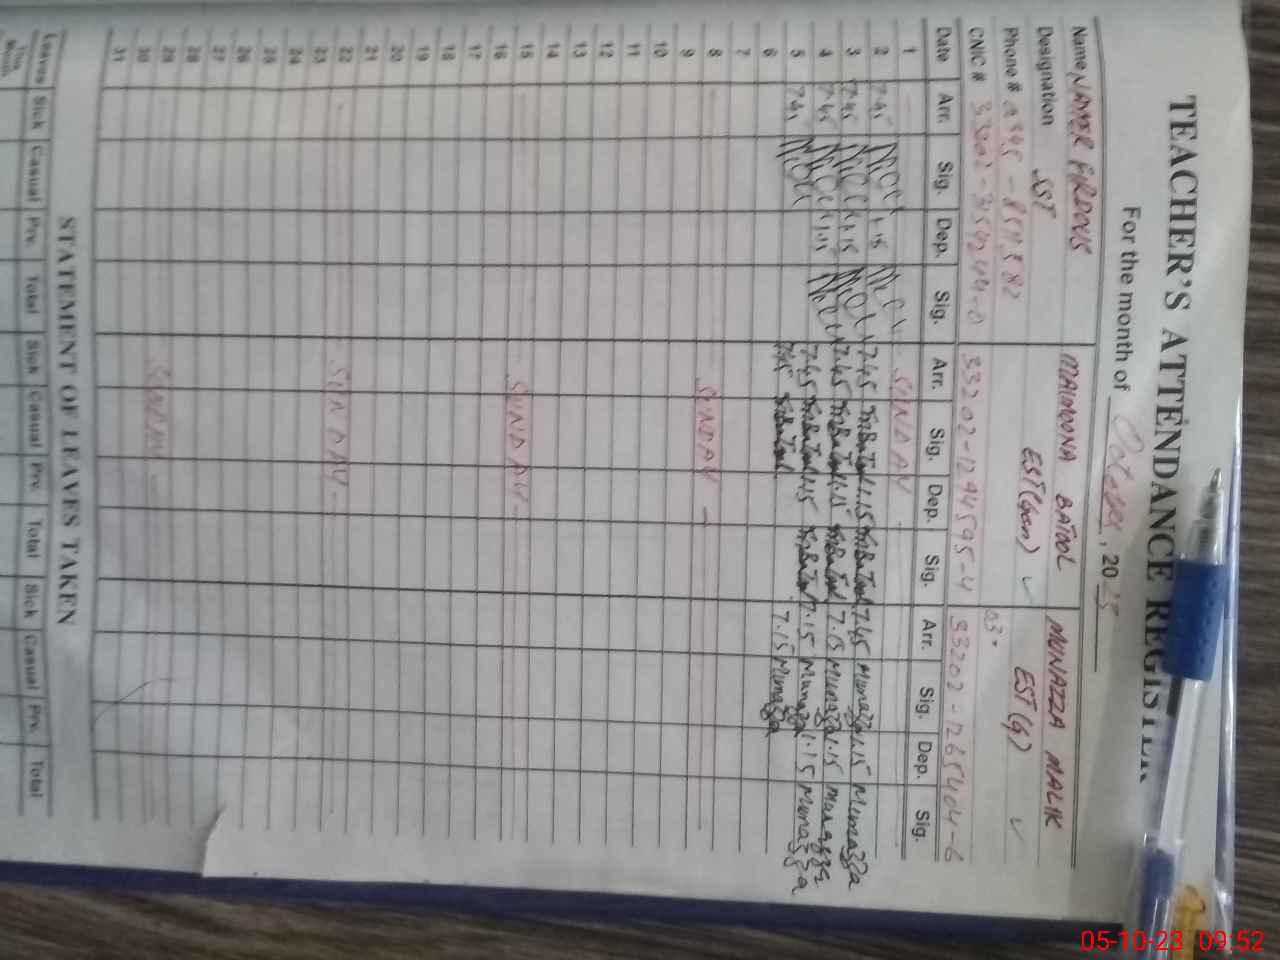 TEACHER'S ATTENDANCE REGISTER
For the month of October, 2023
Name NAYYER FIRDOUS MAIMOONA BATOOL MUNAZZA MALIK
Designation SST EST(Gen) EST(G)
Phone # 03
CNIC # 33202-1294595-4 33202-1265404-6
Date Arr. Sig. Dep. Sig. Arr. Sig. Dep. Sig. Arr. Sig. Dep. Sig.
1 SUNDAY
2 7.45 1.15 7.45 1.15 7.45 Munazza 1.15 Munazza
3 7.45 1.15 7.45 1.15 7.15 Munazza 1.15 Munazza
4 7.45 1.15 7.45 1.15 7.15 Munazza 1.15 Munazza
5 7.45 7.45 7.15 Munazza
6
7
8 SUNDAY
9
10
11
12
13
14
15 SUNDAY
16
17
18
19
20
21
22 SUNDAY
23
24
25
26
27
28
29 SUNDAY
30
31
STATEMENT OF LEAVES TAKEN
Leaves Sick Casual Prv. Total Sick Casual Prv. Total Sick Casual Prv. Total
This Month
05-10-23 09:52